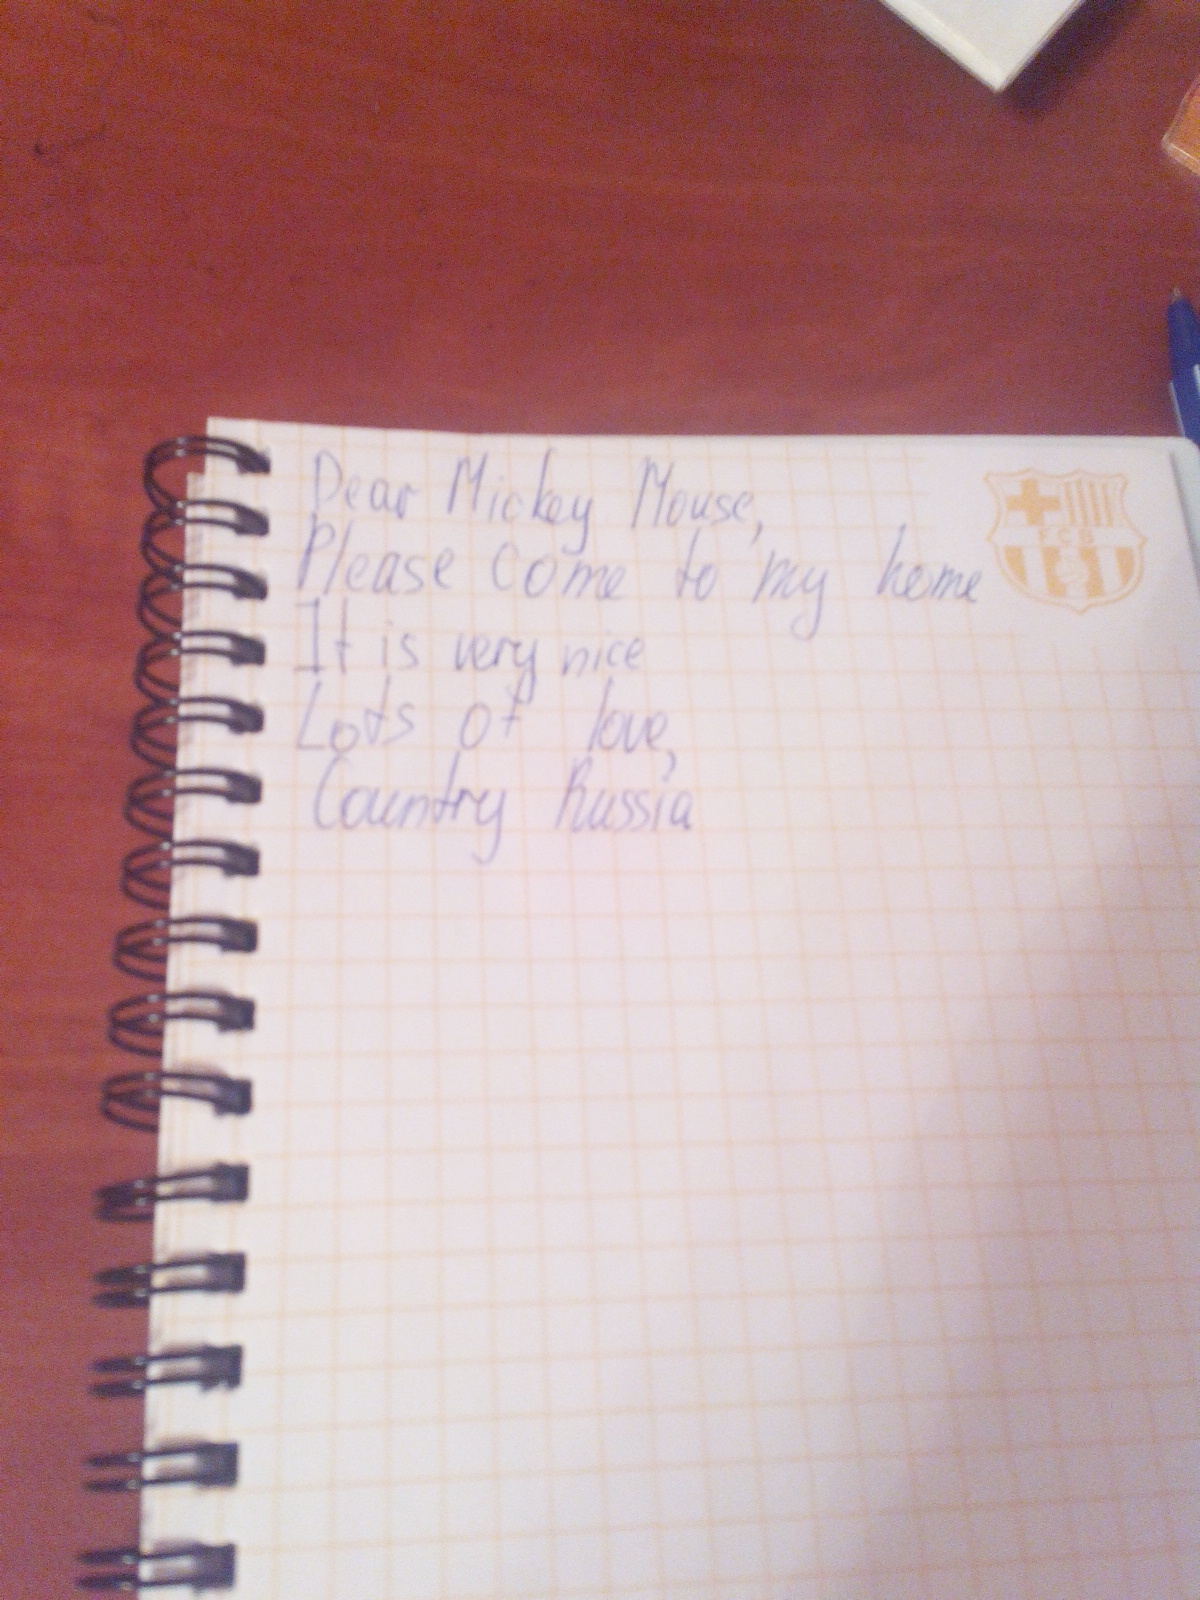 Dear Mickey Mouse,
Please come to my home
It is very nice
Lots of love,
Country Russia
FCB